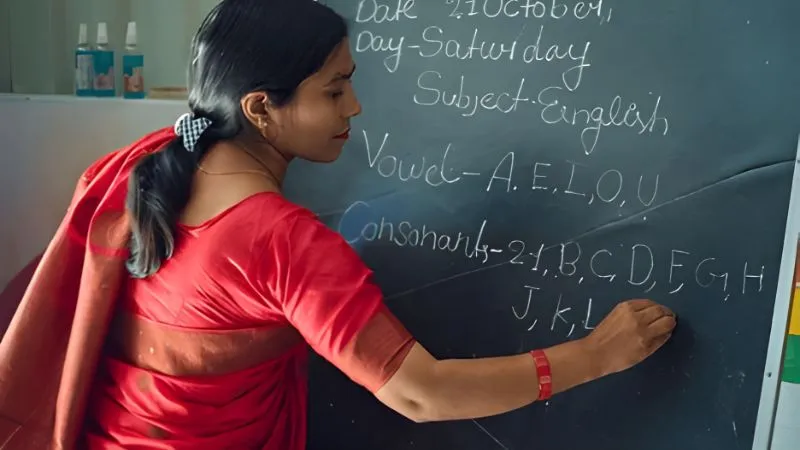 Date 21 October,
Day-Saturday
Subject-English
Vowel-A.E,I,O,U
Consonants-21,B,C,D,F,G,H
J,K,L